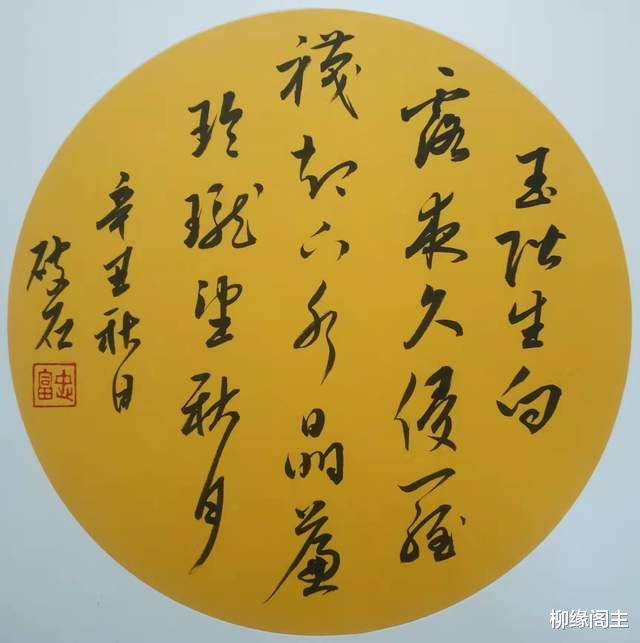 玉阶生白
露夜久侵罗
袜却下水晶帘
玲珑望秋月
辛丑秋日
破石
忠富
柳缘阁主